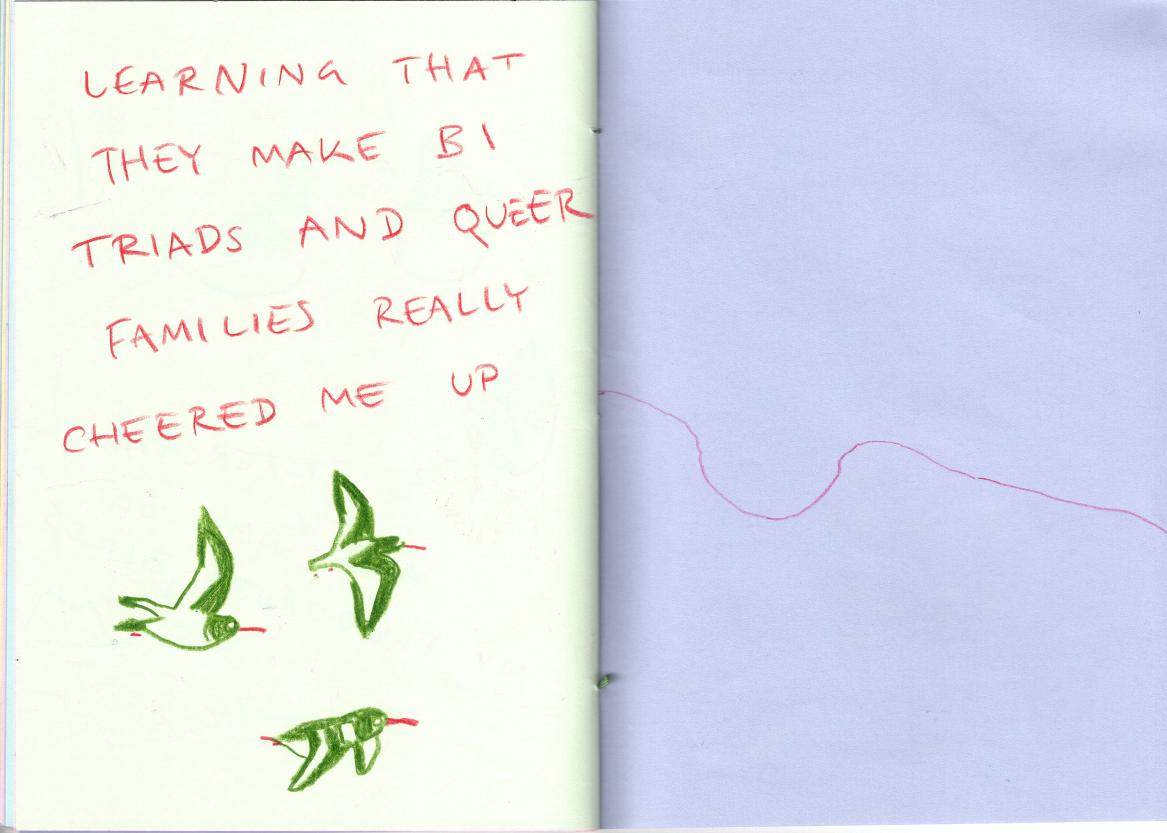 LEARNING THAT
THEY MAKE BI
TRIADS AND QUEER
FAMILIES REALLY
CHEERED ME UP